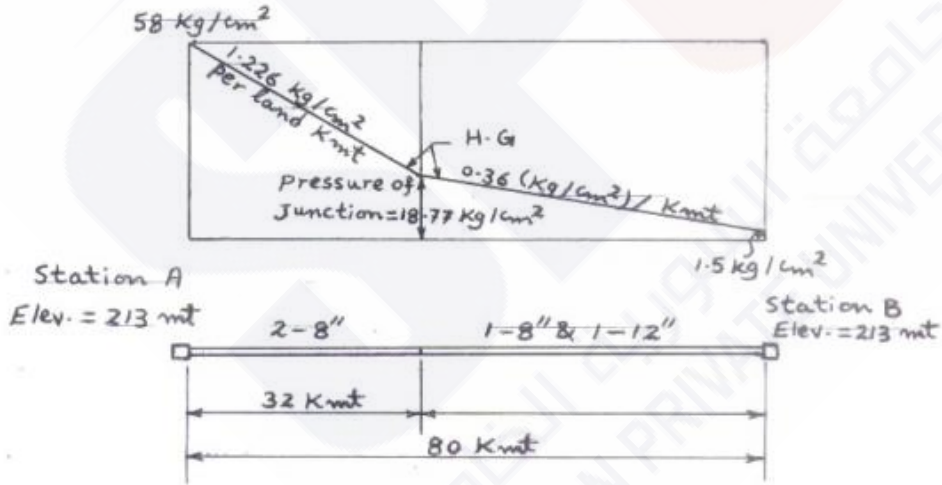 58 Kg/cm²
1.226 Kg/cm²
per land Kmt
H.G
0.36 (Kg/cm²)/Kmt
Pressure of
Junction=18.77 Kg/cm²
1.5 kg/cm²
Station A
Elev. = 213 mt
Station B
Elev. =213 mt
2-8"
1-8" & 1-12"
32 Kmt
80 Kmt
PRIVATE UNIVER